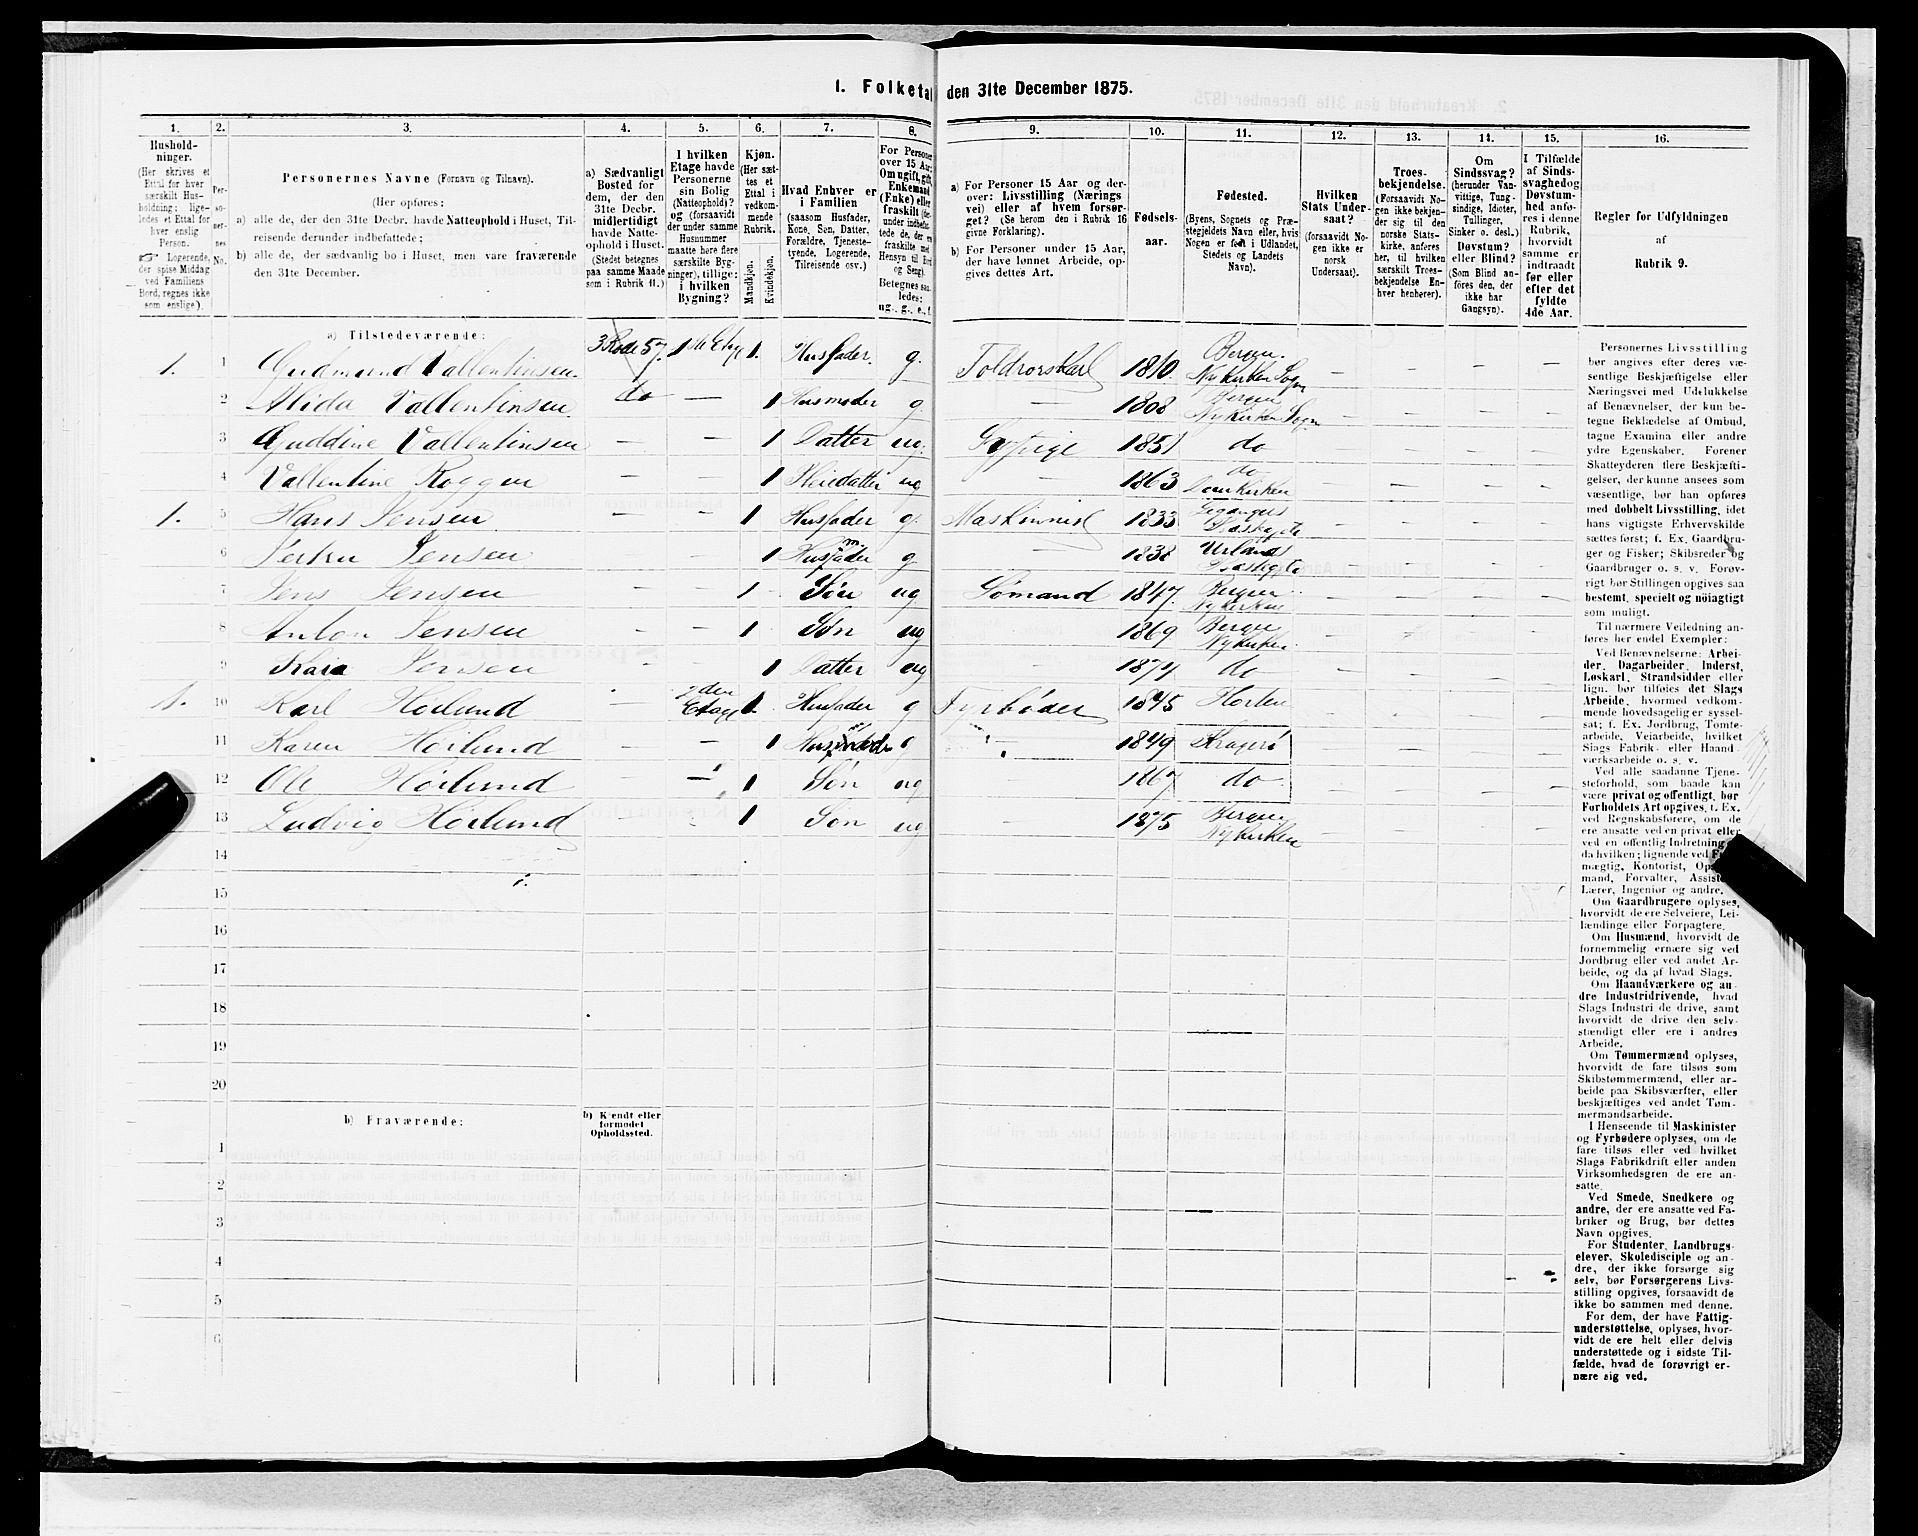 1. Folketal den 31te December 1875.
1. 2. 3. 4. 5. 6. 7. 8. 9. 10. 11. 12. 13. 14. 15. 16.
Hushold-
ninger.
(Her skrives et
Ettal for hver
særskilt Hus-
holdning; lige-
ledes et Ettal for
hver enslig
Person.
☞ Logerende,
der spise Middag
ved Familiens
Bord, regnes ikke
som enslige).
Per-
so-
ner-
nes
No.
Personernes Navne (Fornavn og Tilnavn).
(Her opføres:
a) alle de, der den 31te Decbr. havde Natteophold i Huset, Til-
reisende derunder indbefattede;
b) alle de, der sædvanlig bo i Huset, men vare fraværende
den 31te December.
a) Sædvanligt
Bosted for
dem, der den
31te Decbr.
midlertidigt
havde Natte-
ophold i Huset.
(Stedet betegnes
paa samme Maade
som i Rubrik 11.)
I hvilken
Etage havde
Personerne
sin Bolig
(Natteophold)?
og (forsaavidt
der under samme
Husnummer
maatte høre flere
særskilte Byg-
ninger), tillige:
i hvilken
Bygning?
Kjøn.
(Her sæt-
tes et
Ettal i
vedkom-
mende
Rubrik.
Mandkjøn.
Kvindekjøn.
Hvad Enhver er
i Familien
(saasom Husfader,
Kone, Søn, Datter,
Forældre, Tjeneste-
tyende, Logerende,
Tilreisende osv.)
For Personer
over 15 Aar:
Om ugift, gift,
Enkemand
(Enke) eller
fraskilt
Hensyn til Bord
og Seng).
Betegnes saa-
ledes:
ug., g., e., f.
a) For Personer 15 Aar og der-
over: Livsstilling (Nærings
vei) eller af hvem forsør-
get? (Se herom den i Rubrik 16
givne Forklaring).
b) For Personer under 15 Aar,
der have lønnet Arbeide, op-
gives dettes Art.
Fødsels-
aar.
Fødested.
(Byens, Sognets og Præ-
stegjeldets Navn eller, hvis
Nogen er født i Udlandet,
Stedets og Landets
Navn).
Hvilken
Stats Under-
saat?
(forsaavidt No-
gen ikke er
norsk
Undersaat).
Troes-
bekjendelse.
(Forsaavidt No-
gen ikke bekjen-
der sig til den
norske Stats-
kirke, anføres
her, til hvilken
særskilt Troes-
bekjendelse En-
hver henhører).
Om
Sindssvag?
(herunder Van-
vittige, Tung-
sindige, Idioter,
Tullinger,
Sinker o. desl.)
Døvstum?
eller Blind?
(Som Blind an-
føres den, der
ikke har
Gangsyn).
I Tilfælde
af Sinds-
svaghed og
Døvstum-
hed anfø-
res i denne
Rubrik,
hvorvidt
samme er
indtraadt
før eller
efter det
fyldte
4de Aar.
Regler for Udfyldningen
af
Rubrik 9.
a) Tilstedeværende:
1. 1 Gudmund Vallentinsen 3 Rode 57. 1ste Etage 1. Husfader g. Toldrorskarl 1810 Bergen Nykirken Sogn — — — —
2 Alida Vallentinsen do — 1 Husmoder g. — 1808 Bergen Nykirken Sogn — — — —
3 Guddine Vallentinsen — — 1 Datter ug. 1851 do — — — —
4 Vallentine Roggen — — 1 Pleiedatter ug — 1863 do Domkirken — — — —
1. 5 Hans Jensen — — 1 Husfader g. Maskinnist 1833 — — — —
6 Jensen — 1 Husmoder g 1838 Urlands Præstegjeld — — — —
7 Jens Jensen — 1 Søn ug Sømand 1847 Bergen Nykirken — — — —
8 Anton Jensen — — 1 Søn ug 1869 Bergen Nykirken — — — —
9 Jensen — — 1 Datter ug 1874 do — — — —
1. 10 Karl Høilund 2den Etage 1 Husfader g Fyrbøder 1845 Horten — — — —
11 Karen Høilund — — 1 Husmoder g 1849 Kragerø — — — —
12 Ole Høilund — — 1 Søn ug — 1867 do — — — —
13 Ludvig Høilund 1 Søn ug — 1875 Bergen Nykirken — — — —
14
15
16
17
18
19
20
b) Fraværende:
b) Kjendt eller
formodet
Opholdssted.
1
2
3
4
5
6
Personernes Livsstilling
bør angives efter deres væ-
sentlige Beskjæftigelse eller
Næringsvei med Udelukkelse
af Benævnelser, der kun be-
tegne Beklædelse af Ombud,
tagne Examina eller andre
ydre Egenskaber. Forener
Skatteyderen flere Beskjæfti-
gelser, der kunne ansees som
væsentlige, bør han opføres
med dobbelt Livsstilling, idet
hans vigtigste Erhvervskilde
sættes først; f. Ex. Gaardbru-
ger og Fisker; Skibsreder og
Gaardbruger o. s. v. Forøv-
rigt bør Stillingen opgives saa
bestemt, specielt og nöiagtigt
som muligt.
Til nærmere Veiledning an-
føres her endel Exempler:
Ved Benævnelserne: Arbei-
der, Dagarbeider, Inderst,
Løskarl, Strandsidder eller
lign. bør tilføies det Slags
Arbeide, hvormed vedkom-
mende hovedsagelig er syssel-
sat; f. Ex. Jordbrug, Tomte-
arbeide, Veiarbeide, hvilket
Slags Fabrik- eller Haand
værksarbeide o. s. v.
Ved alle saadanne Tjene-
steforhold, som baade kan
være privat og offentligt, bør
Forholdets Art opgives, t. Ex.
ved Regnskabsførere, om de
ere ansatte ved en privat eller
ved en offentlig Indretning
da hvilken; lignende ved
mægtig, Kontorist,
mand, Forvalter,
Lærer, Ingeniør og andre.
Om Gaardbrugere oplyses,
hvorvidt de ere Selveiere, Lei-
lændinge eller Forpagtere.
Om Husmænd, hvorvidt de
fornemmelig ernære sig ved
Jordbrug eller ved andet Ar-
beide, og da af hvad Slags.
Om Haandværkere og an-
dre Industridrivende, hvad
Slags Industri de drive, samt
hvorvidt de drive den selv-
stændigt eller ere i andres
Arbeide.
Om Tømmermænd oplyses,
hvorvidt de fare tilsøs som
Skibstømmermænd, eller ar-
beide paa Skibsværfter, eller
beskjæftiges ved andet Tøm-
mermandsarbeide.
I Henseende til Maskinister
og Fyrbødere oplyses, om de
fare tilsøs eller ved hvilket
Slags Fabrikdrift eller anden
Virksomhedsgren de ere an-
satte.
Ved Smede, Snedkere og
andre, der ere ansatte ved Fa-
briker og Brug, bør dettes
Navn opgives.
For Studenter, Landbrugs-
elever, Skoledisciple og an-
dre, der ikke forsørge sig
selv, bør Forsørgerens Livs-
stilling opgives, forsaavidt de
ikke bo sammen med denne.
For dem, der have Fattig-
understøttelse, oplyses, hvor-
vidt de ere helt eller delvis
understøttede og i sidste Til-
fælde, hvad de forøvrigt er-
nære sig ved.